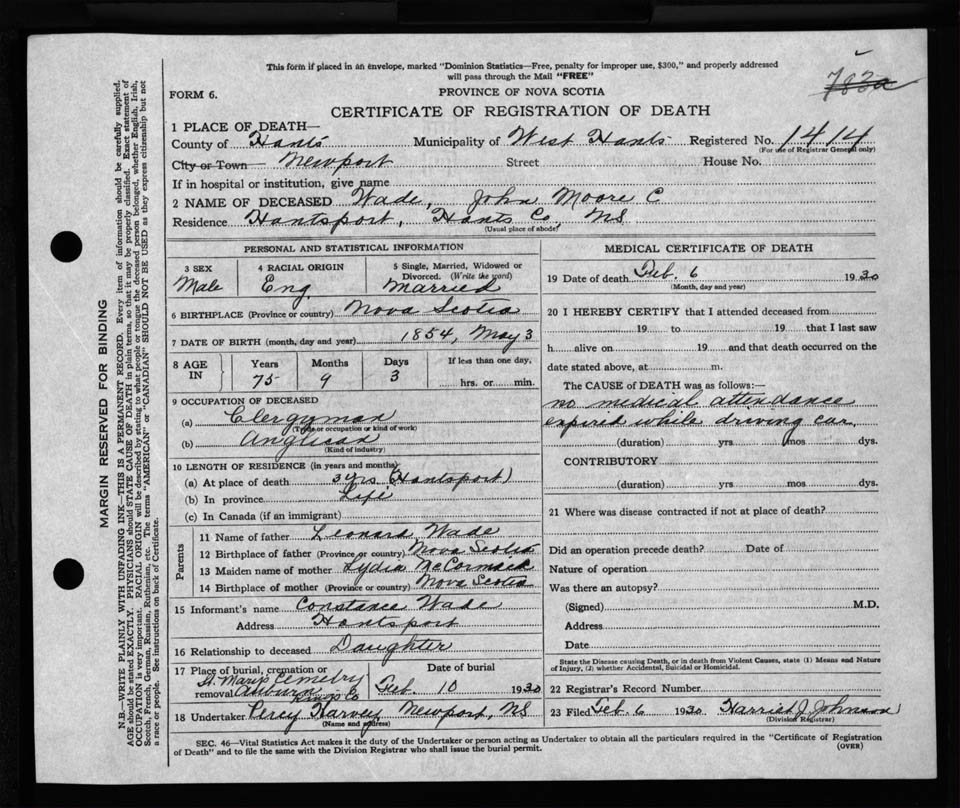 This form if placed in an envelope, marked "Dominion Statistics—Free, penalty for improper use, $300," and properly addressed
will pass through the Mail "FREE"
783a
FORM 6.
PROVINCE OF NOVA SCOTIA
CERTIFICATE OF REGISTRATION OF DEATH
1 PLACE OF DEATH—
County of Hants Municipality of West Hants Registered No. 1414
(For use of Registrar General only)
City or Town Newport Street House No.
If in hospital or institution, give name
2 NAME OF DECEASED Wade, John Moore C
Residence Hantsport, Hants Co, NS
(Usual place of abode)
PERSONAL AND STATISTICAL INFORMATION
3 SEX 4 RACIAL ORIGIN 5 Single, Married, Widowed or
Divorced. (Write the word)
Male Eng. Married
6 BIRTHPLACE (Province or country) Nova Scotia
7 DATE OF BIRTH (month, day and year) 1854, May 3
8 AGE IN Years Months Days If less than one day,
75 9 3 hrs. or min.
9 OCCUPATION OF DECEASED
(a) Clergyman
(Type of occupation or kind of work)
(b) Anglican
(Kind of industry)
10 LENGTH OF RESIDENCE (in years and months)
(a) At place of death 3 yrs (Hantsport)
(b) In province Life
(c) In Canada (if an immigrant)
Parents
11 Name of father Leonard Wade
12 Birthplace of father (Province or country) Nova Scotia
13 Maiden name of mother Lydia McCormack
14 Birthplace of mother (Province or country) Nova Scotia
15 Informant's name Constance Wade
Address Hantsport
16 Relationship to deceased Daughter
17 Place of burial, cremation or Date of burial
removal St Mary's Cemetry
Auburn Kings Co Feb 10 1930
18 Undertaker Percy Harvey Newport, NS
(Name and address)
MEDICAL CERTIFICATE OF DEATH
19 Date of death Feb. 6 1930
(Month, day and year)
20 I HEREBY CERTIFY that I attended deceased from
19 to 19 that I last saw
h alive on 19 and that death occurred on the
date stated above, at m.
The CAUSE of DEATH was as follows:—
no medical attendance
expired while driving car
(duration) yrs mos dys.
CONTRIBUTORY
(duration) yrs. mos. dys.
21 Where was disease contracted if not at place of death?
Did an operation precede death? Date of
Nature of operation
Was there an autopsy?
(Signed) M.D.
Address
Date
State the Disease causing Death, or in death from Violent Causes, state (1) Means and Nature
of Injury, (2) whether Accidental, Suicidal or Homicidal.
22 Registrar's Record Number
23 Filed Feb 6 1930 Harriet J. Johnson
(Division Registrar)
SEC. 46—Vital Statistics Act makes it the duty of the Undertaker or person acting as Undertaker to obtain all the particulars required in the "Certificate of Registration
of Death" and to file the same with the Division Registrar who shall issue the burial permit.
(OVER)
MARGIN RESERVED FOR BINDING
N.B.—WRITE PLAINLY WITH UNFADING INK—THIS IS A PERMANENT RECORD. Every item of information should be carefully supplied.
AGE should be stated EXACTLY. PHYSICIANS should STATE CAUSE OF DEATH in plain terms, so that it may be properly classified. Exact statement of
OCCUPATION is very important. RACIAL ORIGIN will be described by stating to what people or tongue the deceased person belonged, whether English, Irish,
Scotch, French, German, Russian, Ruthenian, etc. The terms "AMERICAN" or "CANADIAN" SHOULD NOT BE USED as they express citizenship but not
a race or people. See instructions on back of Certificate.